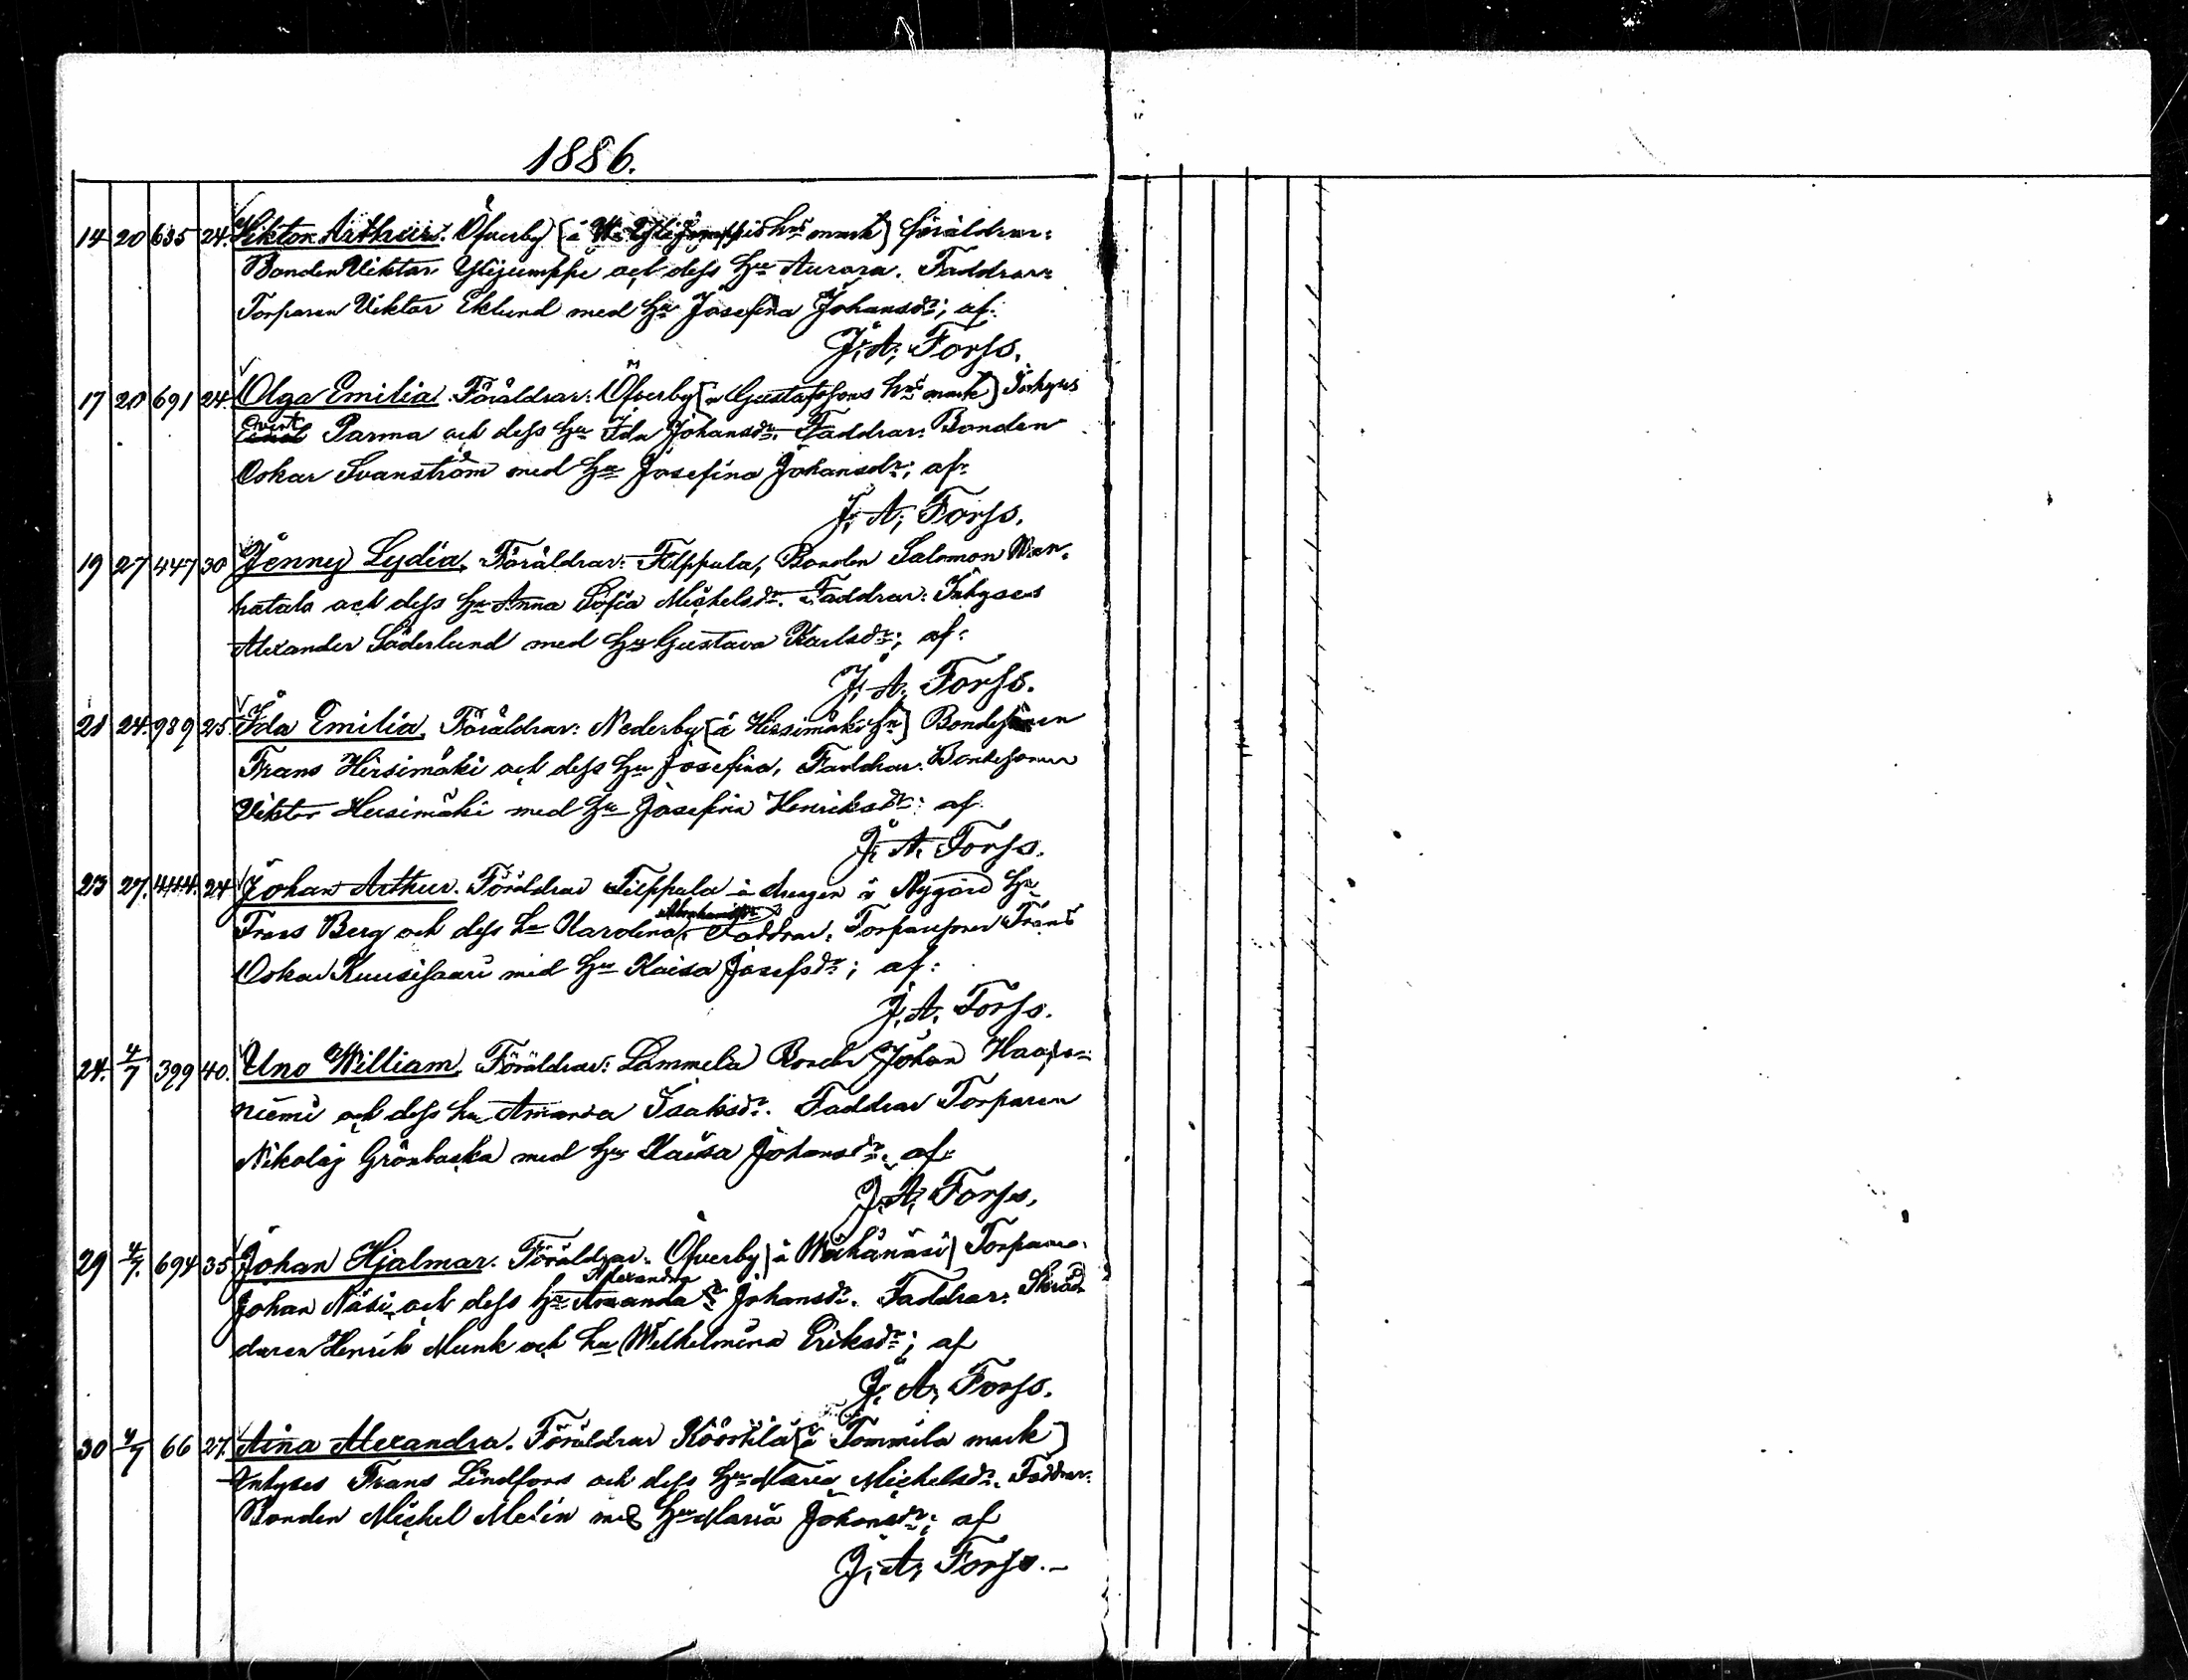 1886.
14 20 635 24. Viktor Arthur. Öfverby (å hns mark) föräldrar:
Bonden Viktor Ylijumppi och dess Hu Aurora. Faddrar:
Torparen Viktor Eklund med Hu Josefina Johansdr; af:
J. A. Forss.
17 20 691 24. Olga Emilia. Föräldrar: Öfverby (å Gustafssons hns mark) Inhyses
Parma och dess Hu Ida Johansdr. Faddrar: Bonden
Oskar Svanström med Hu Josefina Johansdr; af:
J. A. Forss.
19 27 447 30 Jenny Lydia. Föräldrar: Filppula, Bonden Salomon Wan-
hatalo och dess Hu Anna Sofia Michelsdr. Faddrar: Inhyses
Alexander Söderlund med Hu Gustava Karlsdr; af:
J. A. Forss.
21 24. 989 25. Ida Emilia. Föräldrar: Nederby (å Hirsimäki hn) Bondesonen
Frans Hirsimäki och dess Hu Josefina. Faddrar: Bondesonen
Viktor Hirsimäki med Hu Josefina Henriksdr: af.
J. A. Forss.
23 27. 444. 24 Johan Arthur. Föräldrar Filppula drengen å Nygård Hn
Frans Berg och dess hu Karolina Faddrar: Torparesonen Frans
Oskar Kuusisaari med Hu Kaisa Josefsdr; af:
J. A. Forss.
24. 4/7 399 40. Uno William. Föräldrar: Lammela Bonden Johan Haapa-
niemi och dess hu Amanda Isaksdr. Faddrar Torparen
Nikolaj Grönbacka med Hu Kaisa Johansdr. af:
J. A. Forss.
29 4/7. 694 35 Johan Hjalmar. Föräldrar: Öfverby (å Wähänäsi) Torparen
Johan Näsi och dess Hu Alexandra Amanda Johansdr. Faddrar: Skräd-
daren Henrik Munk och hu Wilhelmina Eriksdr; af
J. A. Forss.
30 4/7 66 27. Aina Alexandra. Föräldrar Köörtilä (å Tommila mark)
Inhyses Frans Lindfors och dess Hu Maria Michelsdr. Faddrar:
Bonden Michel Melin med Hu Maria Johansdr; af
J. A. Forss.-